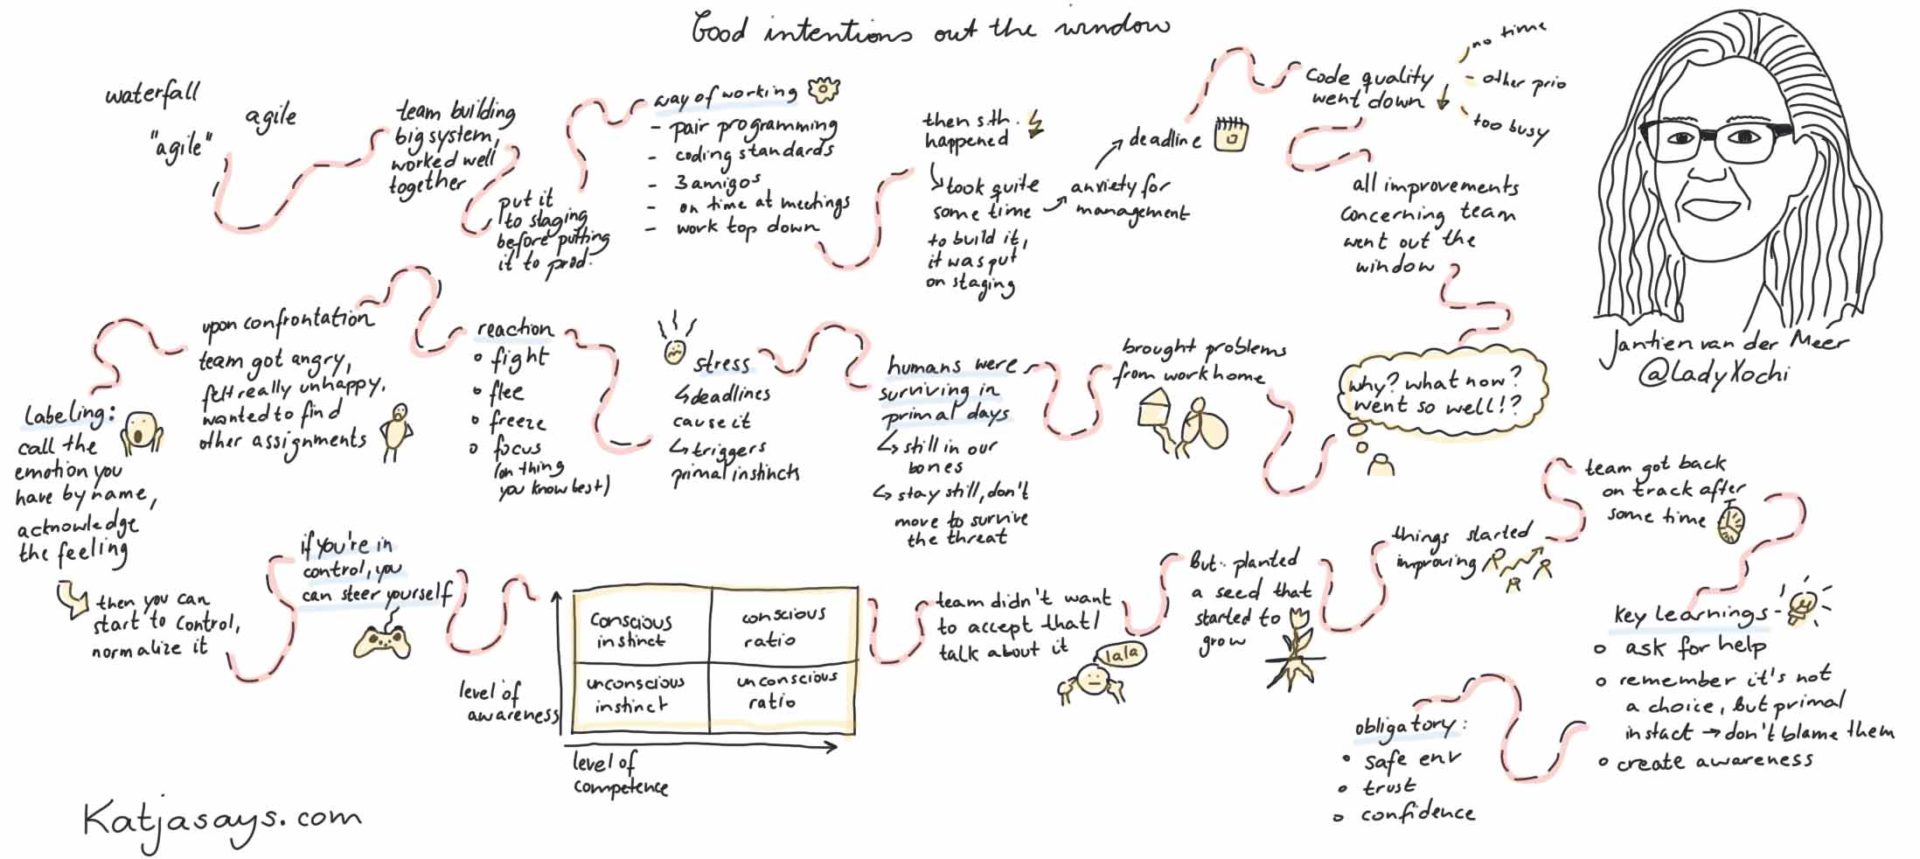 Good intentions out the window
waterfall
"agile"
agile
team building
big system,
worked well
together
put it
to staging
before putting
it to prod.
way of working
- pair programming
- coding standards
- 3 amigos
- on time at meetings
- work top down
then sth.
happened
took quite
some time
to build it,
it was put
on staging
anxiety for
management
deadline
code quality
went down
no time
- other prio
too busy
all improvements
concerning team
went out the
window
Jantien van der Meer
@LadyXochi
why? what now?
went so well!?
brought problems
from work home
humans were
surviving in
primal days
still in our
bones
stay still, don't
move to survive
the threat
stress
deadlines
cause it
triggers
primal instincts
reaction
fight
flee
freeze
focus
(on thing
you know best)
upon confrontation
team got angry,
felt really unhappy,
wanted to find
other assignments
Labeling:
call the
emotion you
have by name,
acknowledge
the feeling
then you can
start to control,
normalize it
if you're in
control, you
can steer yourself
level of
awareness
conscious
instinct
conscious
ratio
unconscious
instinct
unconscious
ratio
level of
competence
team didn't want
to accept that/
talk about it
lala
But: planted
a seed that
started to
grow
things started
improving
team got back
on track after
some time
key learnings
ask for help
remember it's not
a choice, but primal
instact → don't blame them
create awareness
obligatory:
safe env
trust
confidence
Katjasays.com